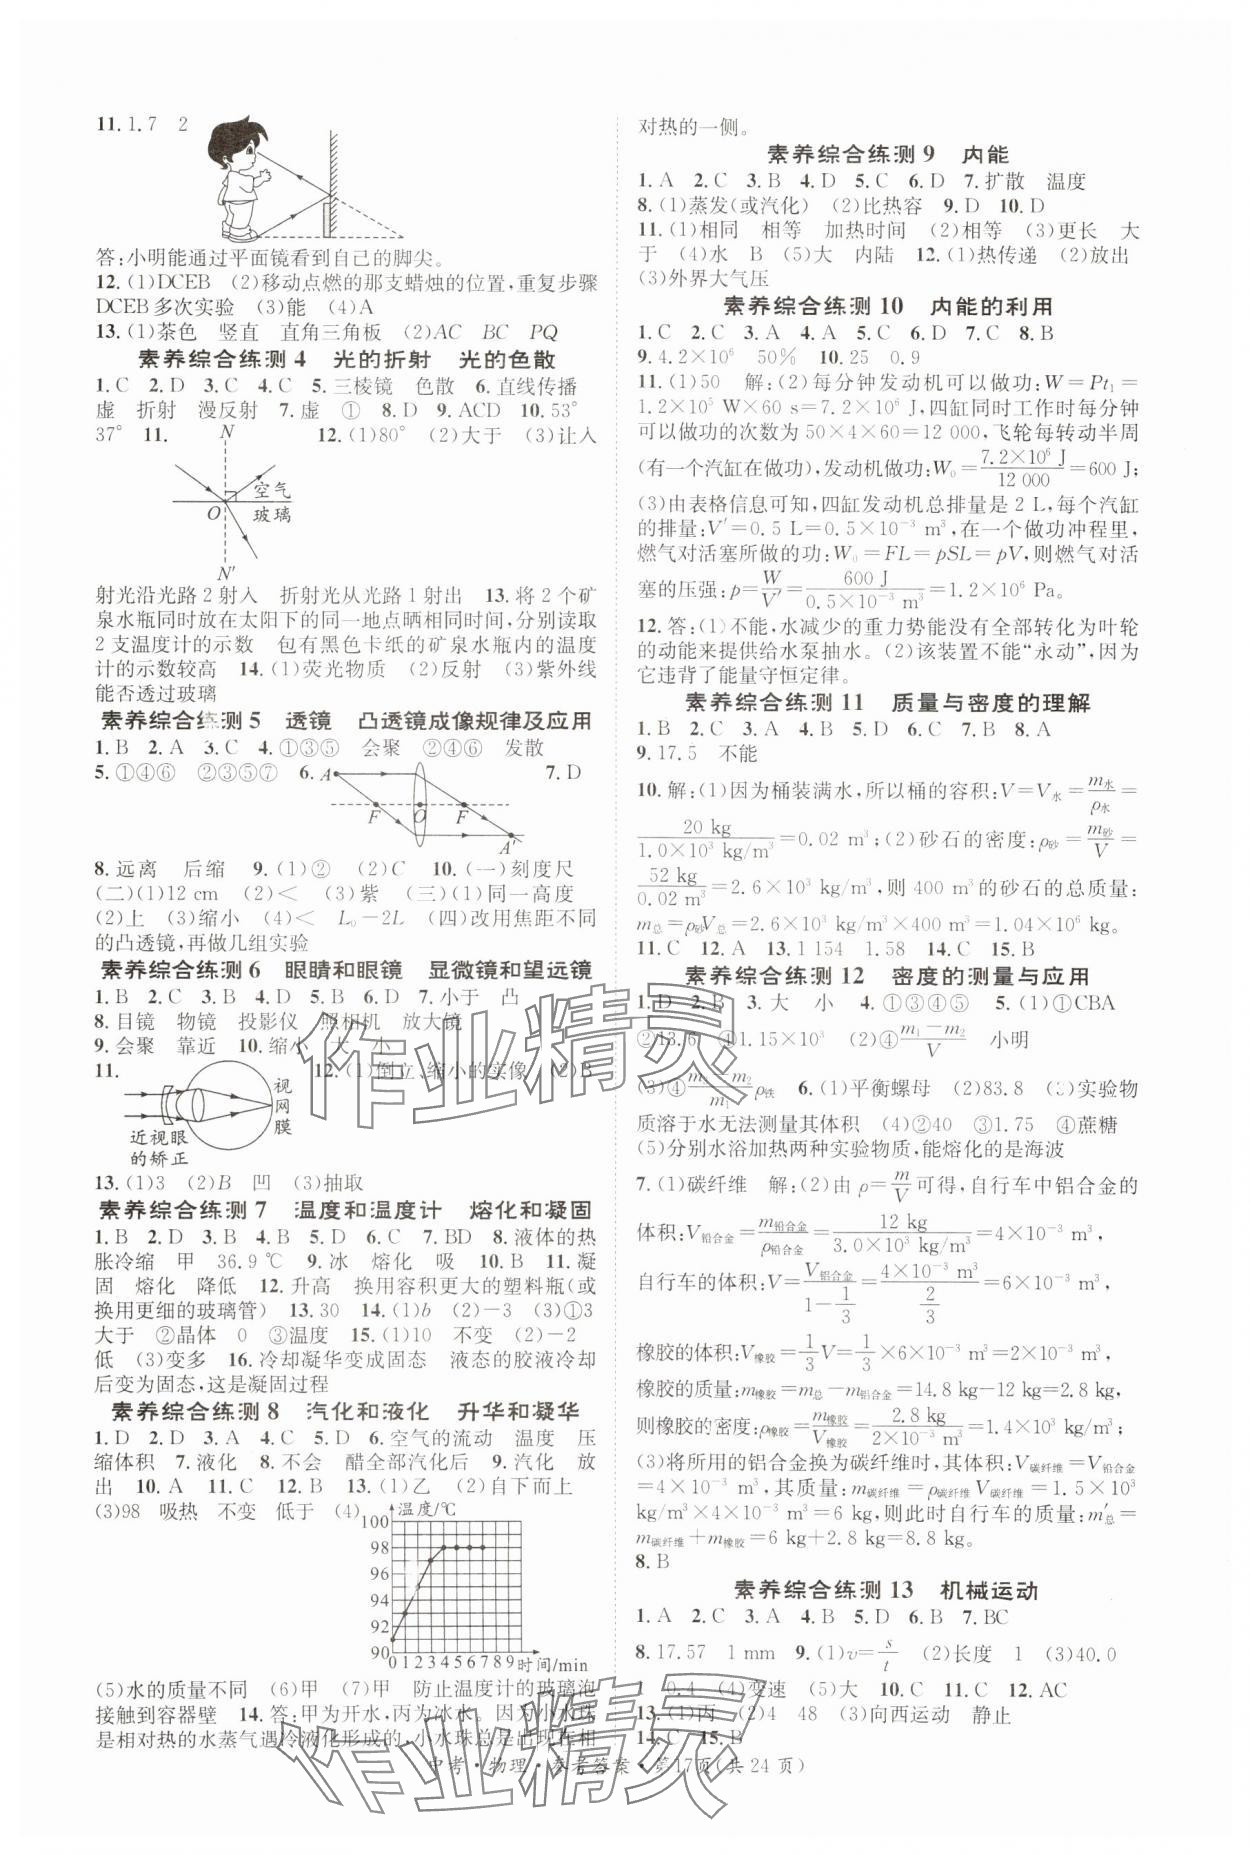 11. 1.7　2
答:小明能通过平面镜看到自己的脚尖。
12. (1)DCEB　(2)移动点燃的那支蜡烛的位置,重复步骤
DCEB多次实验　(3)能　(4)A
13. (1)茶色　竖直　直角三角板　(2)AC　BC　PQ
素养综合练测 4　光的折射　光的色散
1. C　2. D　3. C　4. C　5. 三棱镜　色散　6. 直线传播
虚　折射　漫反射　7. 虚　①　8. D　9. ACD　10. 53°
37°　11.　12. (1)80°　(2)大于　(3)让入
N
空气
O
玻璃
N′
射光沿光路2射入　折射光从光路1射出　13. 将2个矿
泉水瓶同时放在太阳下的同一地点晒相同时间,分别读取
2支温度计的示数　包有黑色卡纸的矿泉水瓶内的温度
计的示数较高　14. (1)荧光物质　(2)反射　(3)紫外线
能否透过玻璃
素养综合练测 5　透镜　凸透镜成像规律及应用
1. B　2. A　3. C　4. ①③⑤　会聚　②④⑥　发散
5. ①④⑥　②③⑤⑦　6.　7. D
A
F　O　F
A′
8. 远离　后缩　9. (1)②　(2)C　10. (一)刻度尺
(二)(1)12 cm　(2)<　(3)紫　(三)(1)同一高度
(2)上　(3)缩小　(4)<　L₀-2L　(四)改用焦距不同
的凸透镜,再做几组实验
素养综合练测 6　眼睛和眼镜　显微镜和望远镜
1. B　2. C　3. A　4. D　5. B　6. D　7. 小于　凸
8. 目镜　物镜　投影仪　照相机　放大镜
9. 会聚　靠近　10. 缩小　大　小
11.　12. (1)倒立、缩小的实像　(2)B
视
网
膜
近视眼
的矫正
13. (1)3　(2)B　凹　(3)抽取
素养综合练测 7　温度和温度计　熔化和凝固
1. B　2. D　3. B　4. B　5. D　6. C　7. BD　8. 液体的热
胀冷缩　甲　36.9 ℃　9. 冰　熔化　吸　10. B　11. 凝
固　熔化　降低　12. 升高　换用容积更大的塑料瓶(或
换用更细的玻璃管)　13. 30　14. (1)b　(2)-3　(3)①3
大于　②晶体　0　③温度　15. (1)10　不变　(2)-2
低　(3)变多　16. 冷却凝华变成固态　液态的胶液冷却
后变为固态,这是凝固过程
素养综合练测 8　汽化和液化　升华和凝华
1. D　2. D　3. A　4. C　5. D　6. 空气的流动　温度　压
缩体积　7. 液化　8. 不会　醋全部汽化后　9. 汽化　放
出　10. A　11. C　12. B　13. (1)乙　(2)自下而上
(3)98　吸热　不变　低于　(4)
温度/℃
100
98
96
94
92
90
0 1 2 3 4 5 6 7 8 9 时间/min
(5)水的质量不同　(6)甲　(7)甲　防止温度计的玻璃泡
接触到容器壁　14. 答:甲为开水,丙为冰水。因为小水珠
是相对热的水蒸气遇冷液化形成的,小水珠总是出现在相
对热的一侧。
素养综合练测 9　内能
1. A　2. C　3. B　4. D　5. C　6. D　7. 扩散　温度
8. (1)蒸发(或汽化)　(2)比热容　9. D　10. D
11. (1)相同　相等　加热时间　(2)相等　(3)更长　大
于　(4)水　B　(5)大　内陆　12. (1)热传递　(2)放出
(3)外界大气压
素养综合练测 10　内能的利用
1. C　2. C　3. A　4. A　5. C　6. D　7. C　8. B
9. 4.2×10⁶　50%　10. 25　0.9
11. (1)50　解:(2)每分钟发动机可以做功:W=Pt₁=
1.2×10⁵ W×60 s=7.2×10⁶ J,四缸同时工作时每分钟
可以做功的次数为 50×4×60=12 000,飞轮每转动半周
(有一个汽缸在做功),发动机做功:W₀=7.2×10⁶ J/12 000=600 J;
(3)由表格信息可知,四缸发动机总排量是 2 L,每个汽缸
的排量:V′=0.5 L=0.5×10⁻³ m³,在一个做功冲程里,
燃气对活塞所做的功:W₀=FL=pSL=pV,则燃气对活
塞的压强:p=W/V′=600 J/0.5×10⁻³ m³=1.2×10⁶ Pa。
12. 答:(1)不能,水减少的重力势能没有全部转化为叶轮
的动能来提供给水泵抽水。(2)该装置不能“永动”,因为
它违背了能量守恒定律。
素养综合练测 11　质量与密度的理解
1. B　2. C　3. A　4. B　5. D　6. C　7. B　8. A
9. 17.5　不能
10. 解:(1)因为桶装满水,所以桶的容积:V=V水=m水/ρ水=
20 kg/1.0×10³ kg/m³=0.02 m³;(2)砂石的密度:ρ砂=m砂/V=
52 kg/0.02 m³=2.6×10³ kg/m³,则 400 m³的砂石的总质量:
m总=ρ砂V总=2.6×10³ kg/m³×400 m³=1.04×10⁶ kg。
11. C　12. A　13. 1 154　1.58　14. C　15. B
素养综合练测 12　密度的测量与应用
1. D　2. B　3. 大　小　4. ①③④⑤　5. (1)①CBA
②13.6　④1.15×10³　(2)④m₁-m₂/V　小明
(3)④m₁-m₂/m₁ρ铁　6. (1)平衡螺母　(2)83.8　(3)实验物
质溶于水无法测量其体积　(4)②40　③1.75　④蔗糖
(5)分别水浴加热两种实验物质,能熔化的是海波
7. (1)碳纤维　解:(2)由 ρ=m/V可得,自行车中铝合金的
体积:V铝合金=m铝合金/ρ铝合金=12 kg/3.0×10³ kg/m³=4×10⁻³ m³,
自行车的体积:V=V铝合金/(1-1/3)=4×10⁻³ m³/(2/3)=6×10⁻³ m³,
橡胶的体积:V橡胶=1/3V=1/3×6×10⁻³ m³=2×10⁻³ m³,
橡胶的质量:m橡胶=m总-m铝合金=14.8 kg-12 kg=2.8 kg,
则橡胶的密度:ρ橡胶=m橡胶/V橡胶=2.8 kg/2×10⁻³ m³=1.4×10³ kg/m³;
(3)将所用的铝合金换为碳纤维时,其体积:V碳纤维=V铝合金
=4×10⁻³ m³,其质量:m碳纤维=ρ碳纤维V碳纤维=1.5×10³
kg/m³×4×10⁻³ m³=6 kg,则此时自行车的质量:m′总=
m碳纤维+m橡胶=6 kg+2.8 kg=8.8 kg。
8. B
素养综合练测 13　机械运动
1. A　2. C　3. A　4. B　5. D　6. B　7. BC
8. 17.57　1 mm　9. (1)v=s/t　(2)长度　1　(3)40.0
1　0.4　(4)变速　(5)大　10. C　11. C　12. AC
13. (1)丙　(2)4　48　(3)向西运动　静止
14. C　15. B
中考·物理·参考答案·第17页(共24页)
作业精灵
作业精灵